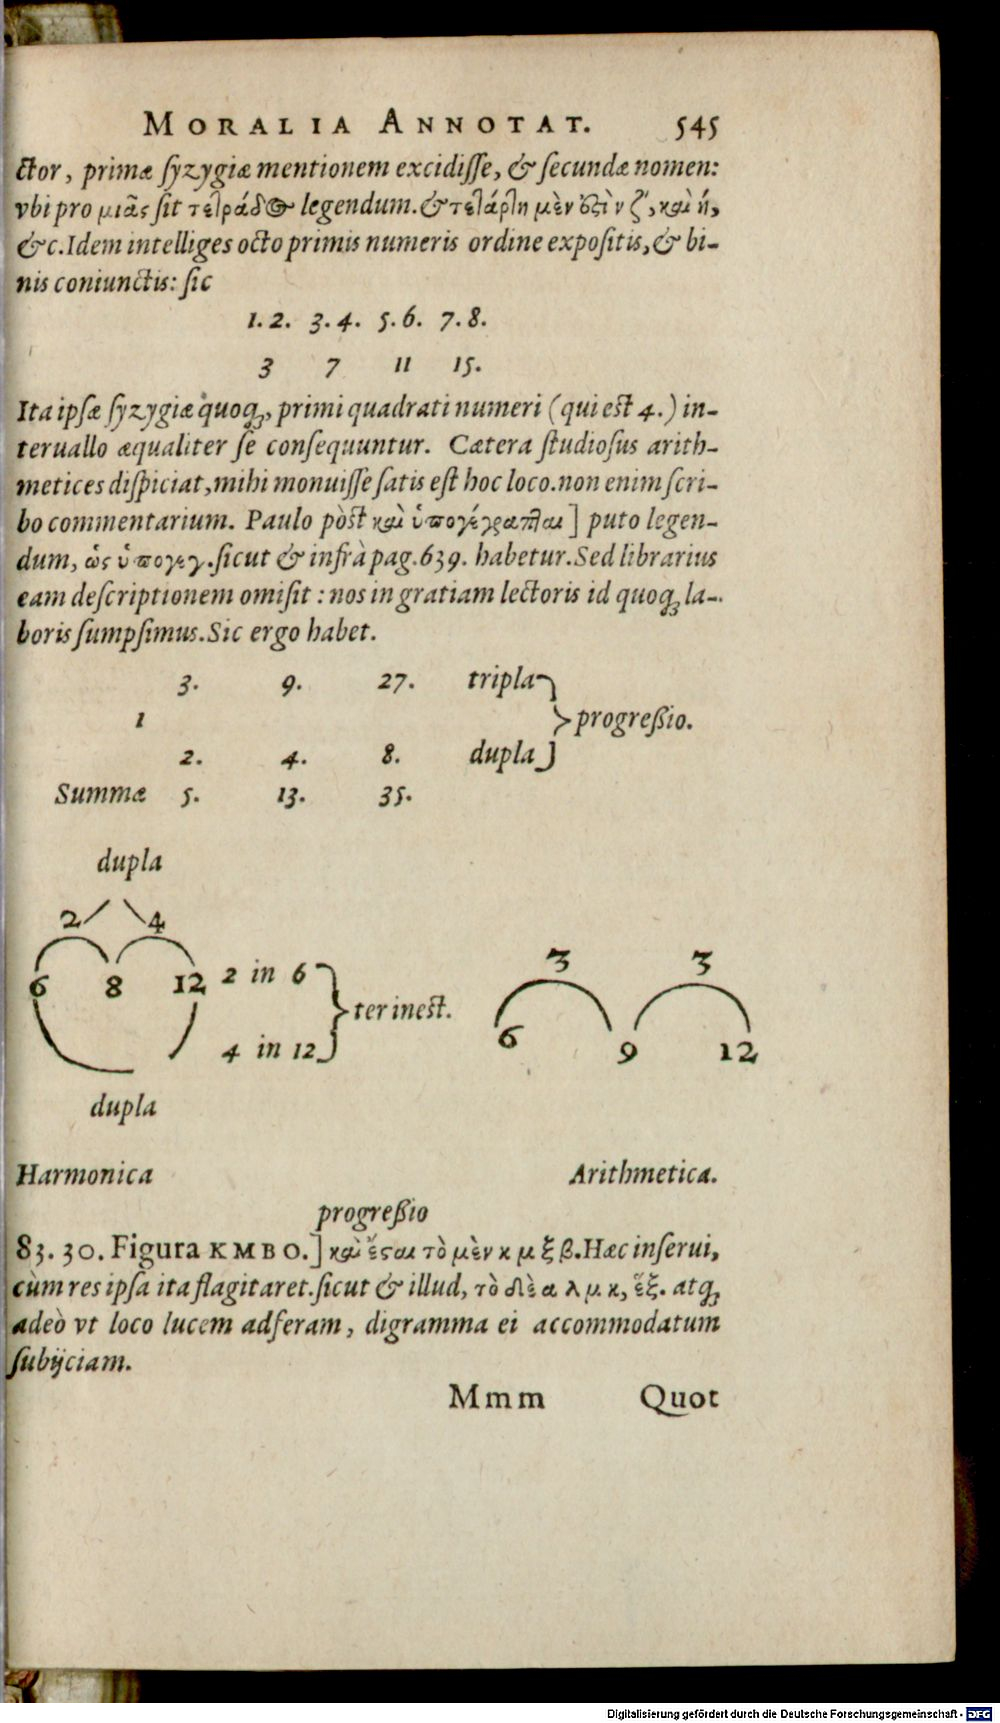 MORALIA ANNOTAT. 545
ctor, primæ ſyzygiæ mentionem excidiſſe, & ſecundæ nomen:
vbi pro μιᾶς ſit τετράδος legendum. & τετάρτη μὲν ὅτι ν ζ, καὶ ή,
&c. Idem intelliges octo primis numeris ordine expoſitis, & bi-
nis coniunctis: ſic
1. 2. 3. 4. 5. 6. 7. 8.
3 7 11 15.
Ita ipſæ ſyzygiæ quoq, primi quadrati numeri (qui eſt 4.) in-
teruallo æqualiter ſe conſequuntur. Cætera ſtudioſus arith-
metices diſpiciat, mihi monuiſſe ſatis eſt hoc loco. non enim ſcri-
bo commentarium. Paulo pòſt καὶ ὑπογέγραπται] puto legen-
dum, ὡς ὑπογεγ. ſicut & infrà pag. 639. habetur. Sed librarius
eam deſcriptionem omiſit: nos in gratiam lectoris id quoq, la-
boris ſumpſimus. Sic ergo habet.
3. 9. 27. tripla
1 progreßio.
2. 4. 8. dupla
Summæ 5. 13. 35.
dupla
2 4
6 8 12 2 in 6
ter ineſt.
4 in 12
dupla
3 3
6 9 12
Harmonica Arithmetica.
progreßio
83. 30. Figura KMBO.] καὶ ἔςαι τὸ μὲν κ μ ξ β. Hæc inſerui,
cùm res ipſa ita flagitaret. ſicut & illud, τὸ δὲ α λ μ κ, ἓξ. atq,
adeò vt loco lucem adferam, digramma ei accommodatum
ſubijciam.
Mmm Quot
Digitalisierung gefördert durch die Deutsche Forschungsgemeinschaft - DFG